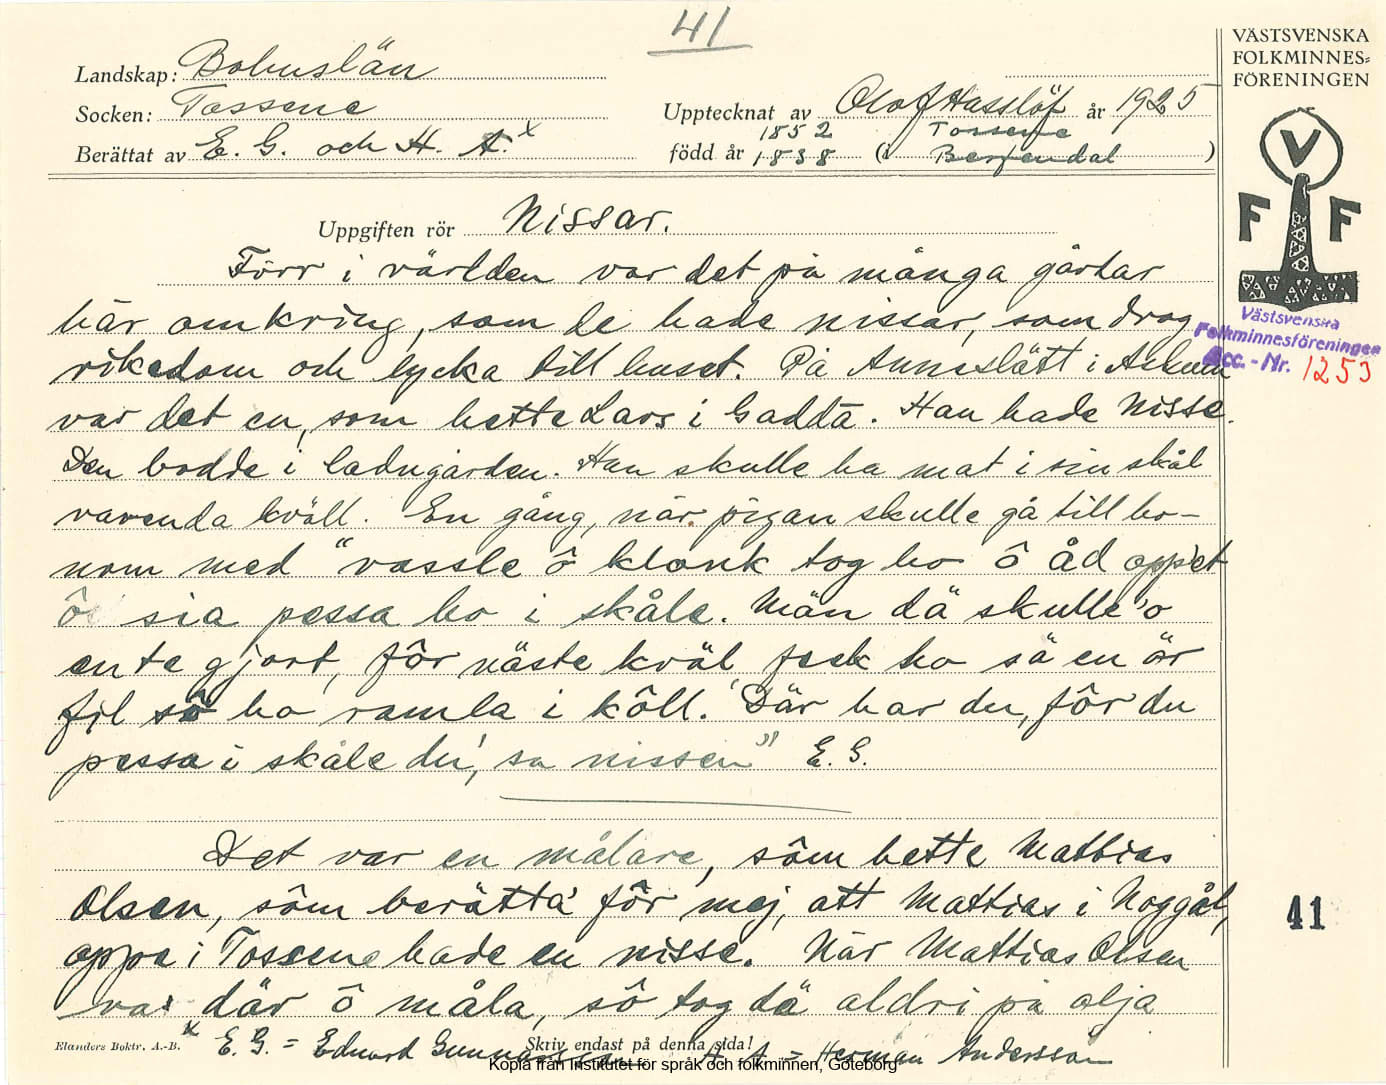 41
Landskap: Bohuslän
Socken: Tossene
Berättat av E. G. och H. A.x
Upptecknat av Olof Hasslöf år 1925
1852 Tossene
född år 1838 (i Berfendal)
VÄSTSVENSKA
FOLKMINNES-
FÖRENINGEN
V
F F
Västsvenska
Folkminnesföreningen
Acc.-Nr. 1253
Uppgiften rör Nissar.
Förr i världen var det på många gårdar
här omkring, som de hade nissar, som drog
rikedom och lycka till huset. På Anneslätt i Askum
var det en, som hette Lars i Gadda. Han hade Nisse.
Den bodde i ladugården. Han skulle ha mat i sin skål
varenda kväll. En gång, när pigan skulle gå till ho-
nom med "vassle ô klonk tog ho ô åd opp'et
ô sia pessa ho i skåle. Män dä skulle 'o
ente gjort, för näste kväl feck ho så en är
fil sô ho ramla i kôll. 'Där har du, för du
pessa i skåle du', sa nissen" E. G.
Det var en målare, sôm hette Mathias
Olsen, sôm berätta' för mej, att Mattias i Noggål,
oppe i Tossene hade en nisse. När Mattias Olsen
var där ô måla, sô tog dä aldri på olja
41
Elanders Boktr. A.-B.
Skriv endast på denna sida!
x E. G. = Edvard Gunnarsson H. A = Herman Andersson
Kopia från Institutet för språk och folkminnen, Göteborg